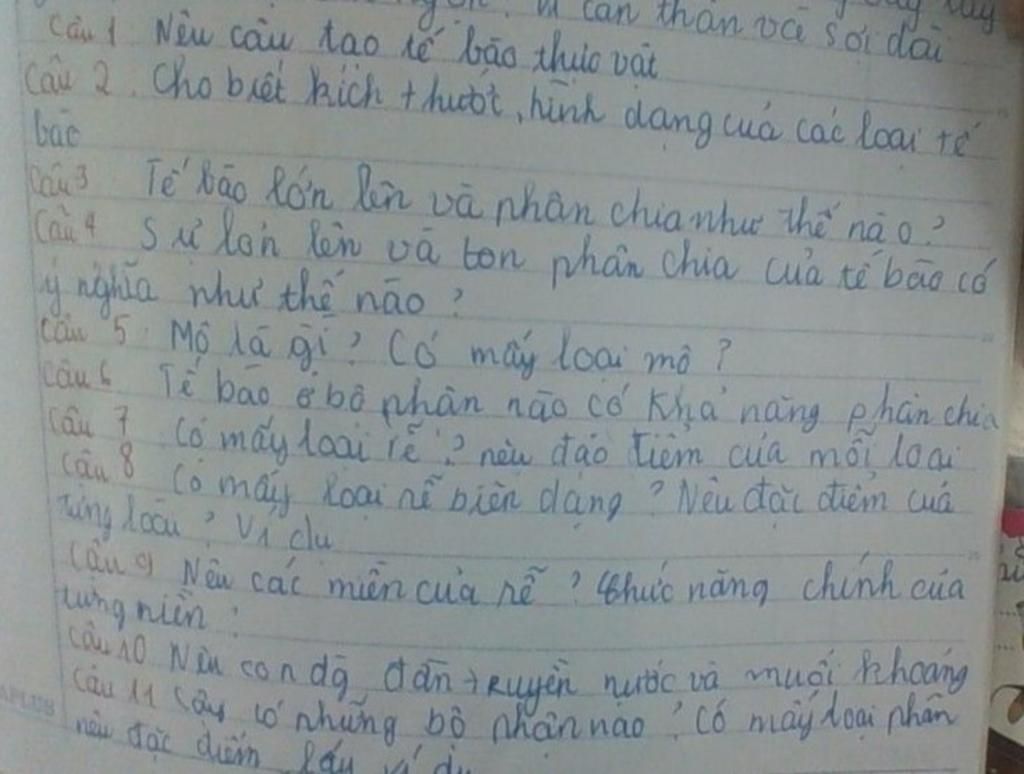 cẩn thận và sợi dài
Câu 1 Nêu cấu tạo tế bào thực vật
Câu 2. Cho biết kích thướt, hình dạng của các loại tế
bào
Câu 3 Tế bào lớn lên và phân chia như thế nào?
Câu 4 Sự lớn lên và ton phân chia của tế bào có
ý nghĩa như thế nào?
Câu 5: Mô là gì? Có mấy loại mô?
Câu 6 Tế bào ở bộ phận nào có khả năng phân chia
Câu 7 Có mấy loại rễ? nêu đặc tiêm của mỗi loại
Câu 8 Có mấy loại rễ biến dạng? Nêu đặc điểm của
từng loại? Ví dụ
Câu 9 Nêu các miền của rễ? Chức năng chính của
từng niền?
Câu 10 Nêu con đg dẫn truyền nước và muối khoáng
Câu 11 Cây có những bộ phận nào? Có mấy loại phân
nêu đặc điểm lấy ví dụ